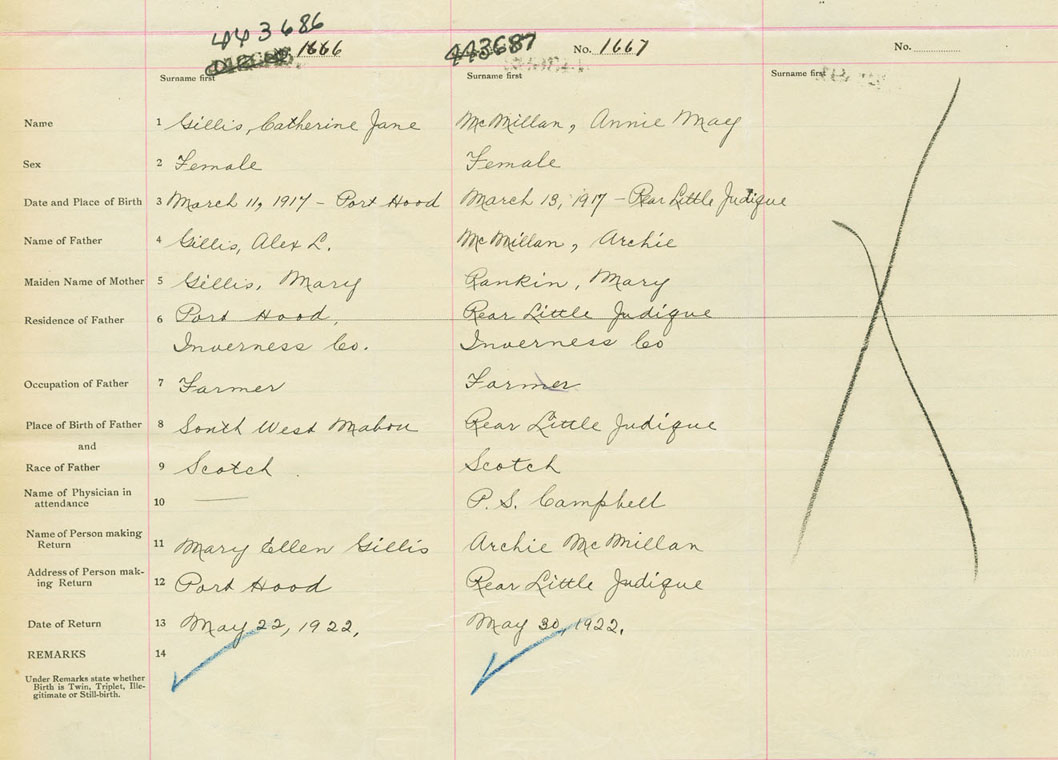 443686 443687
1666 No. 1667 No.
Surname first Surname first Surname first
Name 1 Gillis, Catherine Jane McMillan, Annie May
Sex 2 Female Female
Date and Place of Birth 3 March 11, 1917 - Port Hood March 13, 1917 - Rear Little Judique
Name of Father 4 Gillis, Alex L. McMillan, Archie
Maiden Name of Mother 5 Gillis, Mary Rankin, Mary
Residence of Father 6 Port Hood, Rear Little Judique
Inverness Co. Inverness Co
Occupation of Father 7 Farmer Farmer
Place of Birth of Father 8 South West Mabou Rear Little Judique
and
Race of Father 9 Scotch Scotch
Name of Physician in
attendance 10 P. S. Campbell
Name of Person making
Return 11 Mary Ellen Gillis Archie McMillan
Address of Person mak-
ing Return 12 Port Hood Rear Little Judique
Date of Return 13 May 22, 1922, May 30, 1922.
REMARKS 14
Under Remarks state whether
Birth is Twin, Triplet, Ille-
gitimate or Still-birth.